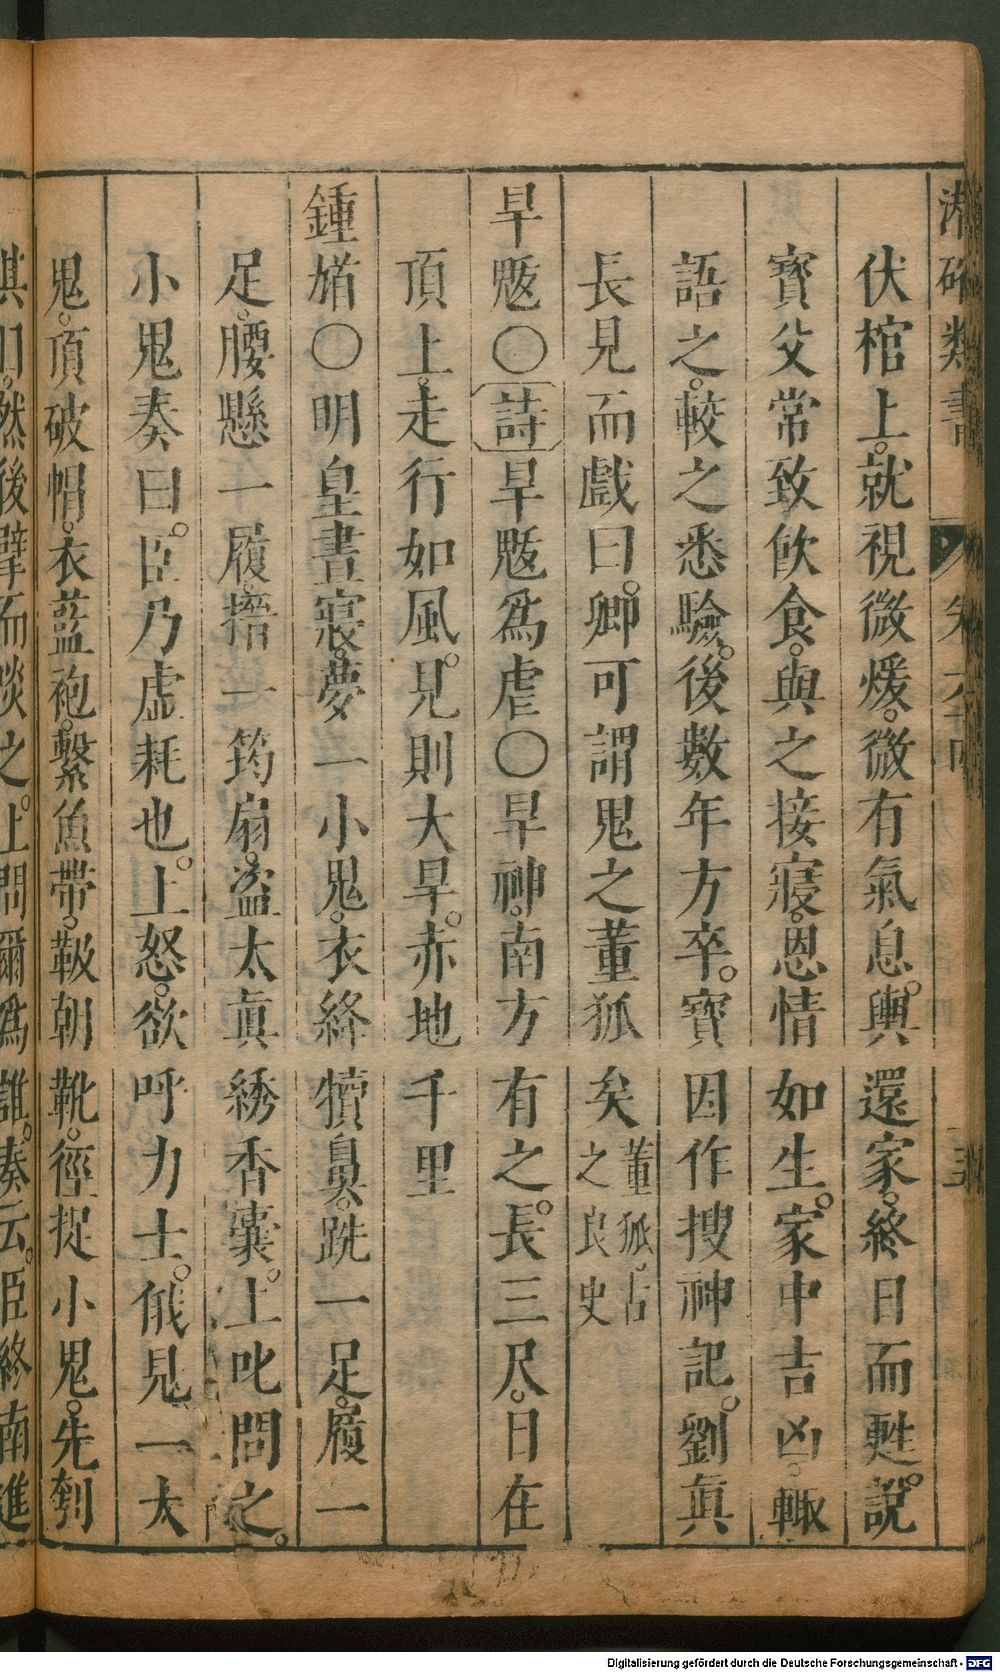 潜確類書
卷六十四
伏棺上。就視微煖。微有氣息。輿還家。終日而甦。說
寳父常致飲食。與之接寢。恩情如生。家中吉凶。輙
語之。較之悉驗。後數年方卒。寳因作搜神記。劉眞
長見而戲曰。卿可謂鬼之董狐矣董狐。古之良史
旱魃○詩旱魃爲虐○旱神。南方有之。長三尺。目在
頂上。走行如風。見則大旱。赤地千里
鍾馗○明皇晝寢。夢一小鬼。衣絳犢鼻。跣一足。履一
足。腰懸一履。搢一筠扇。盜太眞綉香囊。上叱問之。
小鬼奏曰。臣乃虛耗也。上怒。欲呼力士。俄見一大
鬼。頂破帽。衣藍袍。繫魚帶。靸朝靴。徑捉小鬼。先刳
其目。然後擘而啖之。上問爾爲誰。奏云。臣終南進
Digitalisierung gefördert durch die Deutsche Forschungsgemeinschaft - DFG